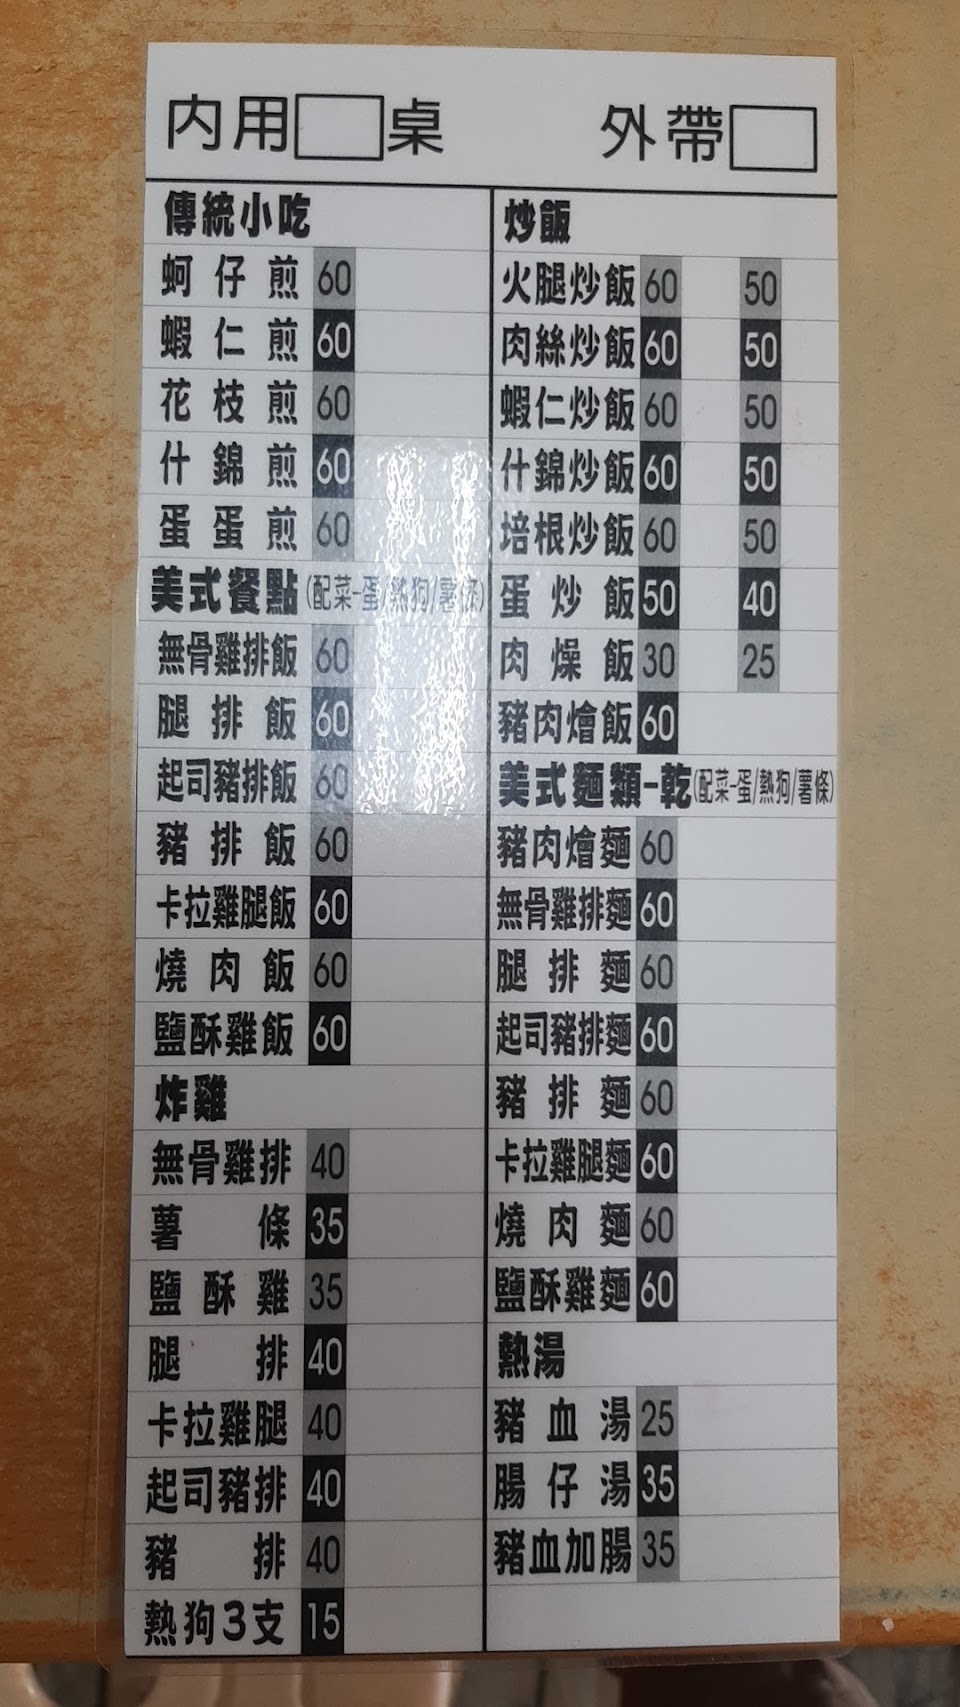 內用 桌 外帶
傳統小吃
蚵仔煎 60
蝦仁煎 60
花枝煎 60
什錦煎 60
蛋蛋煎 60
美式餐點 (配菜-蛋/熱狗/薯條)
無骨雞排飯 60
腿排飯 60
起司豬排飯 60
豬排飯 60
卡拉雞腿飯 60
燒肉飯 60
鹽酥雞飯 60
炸雞
無骨雞排 40
薯條 35
鹽酥雞 35
腿排 40
卡拉雞腿 40
起司豬排 40
豬排 40
熱狗3支 15
炒飯
火腿炒飯 60 50
肉絲炒飯 60 50
蝦仁炒飯 60 50
什錦炒飯 60 50
培根炒飯 60 50
蛋炒飯 50 40
肉燥飯 30 25
豬肉燴飯 60
美式麵類-乾(配菜-蛋/熱狗/薯條)
豬肉燴麵 60
無骨雞排麵 60
腿排麵 60
起司豬排麵 60
豬排麵 60
卡拉雞腿麵 60
燒肉麵 60
鹽酥雞麵 60
熱湯
豬血湯 25
腸仔湯 35
豬血加腸 35